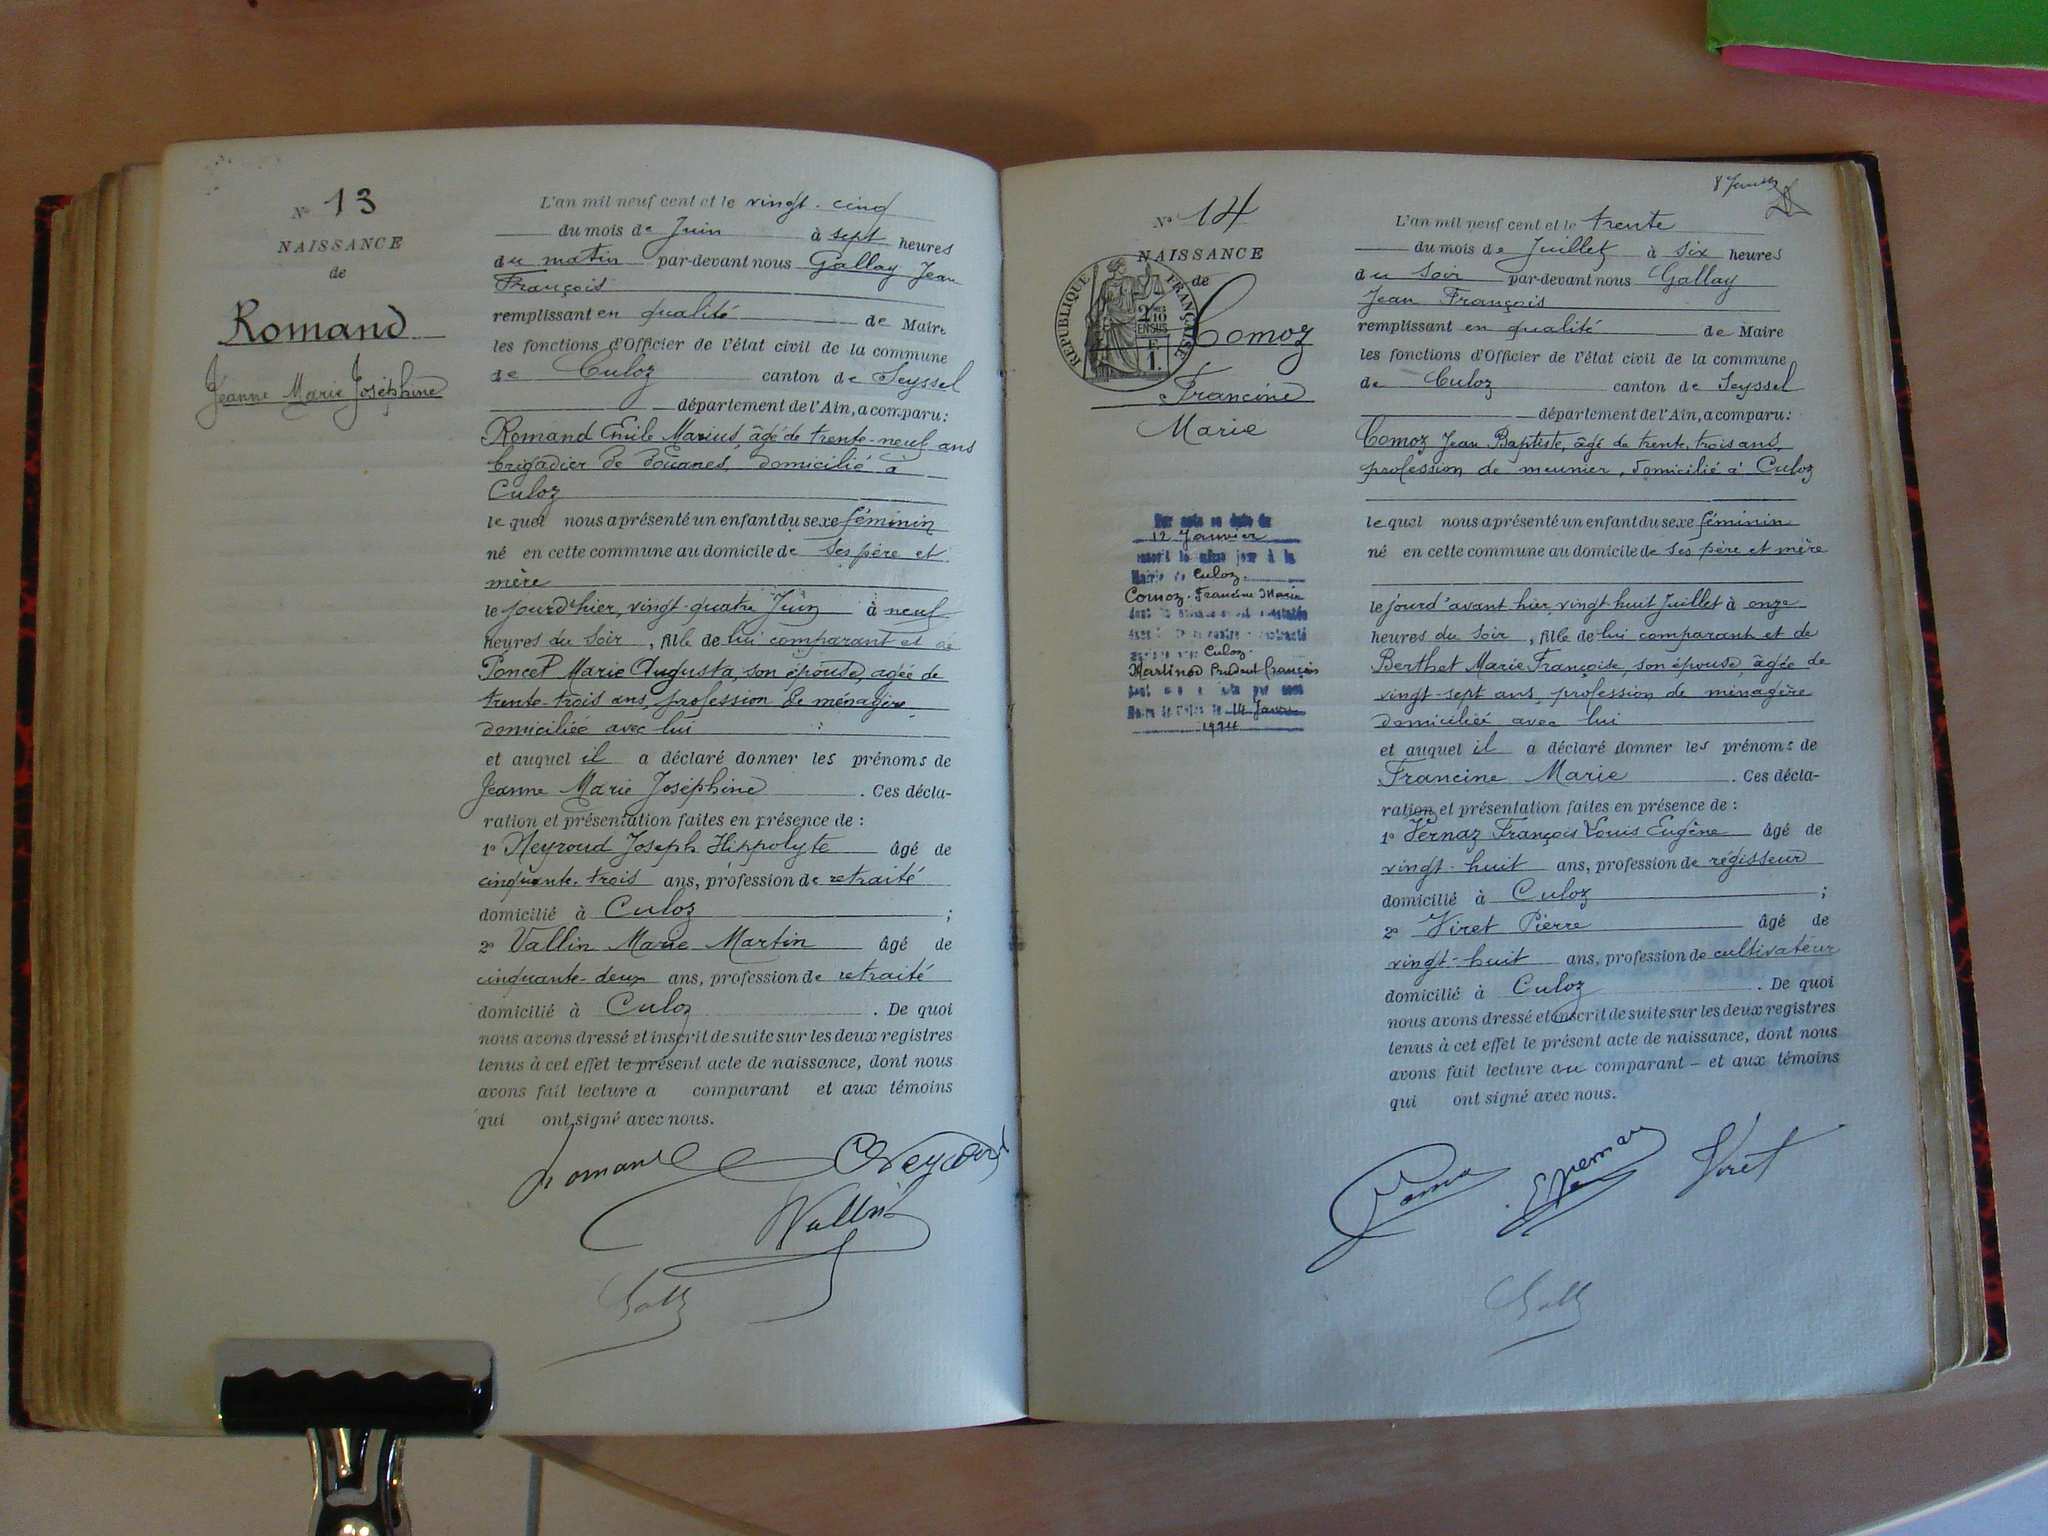 N° 13
NAISSANCE
de
Romand
Jeanne Marie Joséphine
L'an mil neuf cent et le vingt-cinq
du mois de Juin à sept heures
du matin par-devant nous Gallay Jean
François
remplissant en qualité de Maire
les fonctions d'Officier de l'état civil de la commune
de Culoz canton de Seyssel
département de l'Ain, a comparu:
Romand Emile Marius, âgé de trente-neuf ans
brigadier de douanes, domicilié à
Culoz
lequel nous a présenté un enfant du sexe féminin
né en cette commune au domicile de ses père et
mère
le jourd'hier, vingt-quatre Juin à neuf
heures du soir, fille de lui comparant et de
Poncet Marie Augusta, son épouse, agée de
trente-trois ans, profession de ménagère
domiciliée avec lui
et auquel il a déclaré donner les prénoms de
Jeanne Marie Joséphine. Ces décla-
ration et présentation faites en présence de :
1° Neyroud Joseph Hippolyte âgé de
cinquante-trois ans, profession de retraité
domicilié à Culoz ;
2° Vallin Marie Martin âgé de
cinquante-deux ans, profession de retraité
domicilié à Culoz. De quoi
nous avons dressé et inscrit de suite sur les deux registres
tenus à cet effet le présent acte de naissance, dont nous
avons fait lecture a comparant et aux témoins
qui ont signé avec nous.
Romand Neyroud
Vallin
8 Janvier
N° 14
NAISSANCE
de
RÉPUBLIQUE FRANÇAISE
2/10
EN SUS
F.
1.
Comoz
Francine
Marie
12 Janvier
le même jour à la
Mairie de Culoz.
Comoz. Francine Marie
Culoz.
Martinod Prudent François
14 Janv
1924
L'an mil neuf cent et le trente
du mois de Juillet à six heures
du soir par-devant nous Gallay
Jean François
remplissant en qualité de Maire
les fonctions d'Officier de l'état civil de la commune
de Culoz canton de Seyssel
département de l'Ain, a comparu:
Comoz Jean Baptiste, âgé de trente-trois ans,
profession de meunier, domicilié à Culoz
lequel nous a présenté un enfant du sexe féminin
né en cette commune au domicile de ses père et mère
le jourd'avant hier, vingt-huit Juillet à onze
heures du soir, fille de lui comparant et de
Berthet Marie Françoise, son épouse, âgée de
vingt-sept ans, profession de ménagère
domiciliée avec lui
et auquel il a déclaré donner les prénoms de
Francine Marie. Ces décla-
ration et présentation faites en présence de :
1° Vernaz François Louis Eugène âgé de
vingt-huit ans, profession de régisseur
domicilié à Culoz ;
2° Viret Pierre âgé de
vingt-huit ans, profession de cultivateur
domicilié à Culoz. De quoi
nous avons dressé et inscrit de suite sur les deux registres
tenus à cet effet le présent acte de naissance, dont nous
avons fait lecture au comparant – et aux témoins
qui ont signé avec nous.
Viret